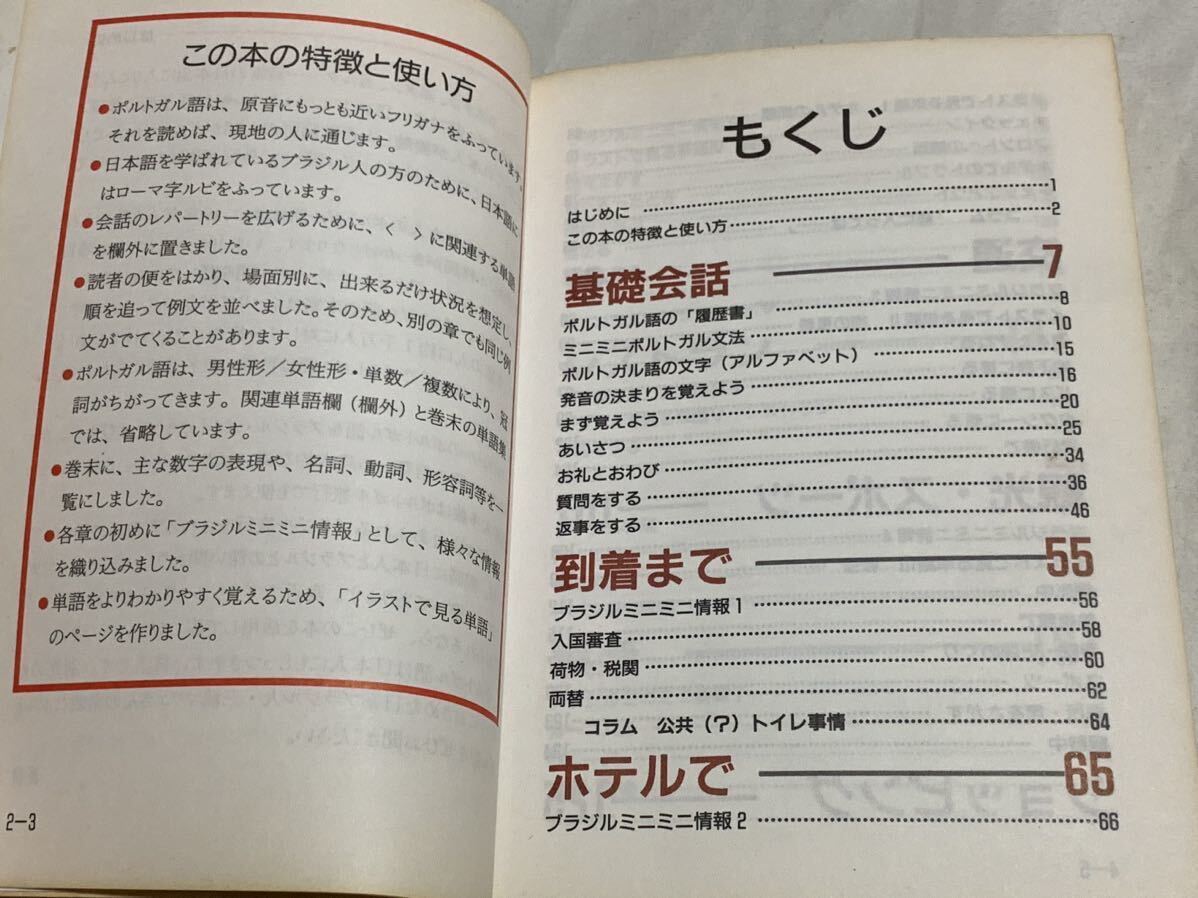 この本の特徴と使い方
●ポルトガル語は、原音にもっとも近いフリガナをふっています。
それを読めば、現地の人に通じます。
●日本語を学ばれているブラジル人の方のために、日本語に
はローマ字ルビをふっています。
●会話のレパートリーを広げるために、〈　〉に関連する単語
を欄外に置きました。
●読者の便をはかり、場面別に、出来るだけ状況を想定し、
順を追って例文を並べました。そのため、別の章でも同じ例
文がでてくることがあります。
●ポルトガル語は、男性形／女性形・単数／複数により、冠
詞がちがってきます。関連単語欄（欄外）と巻末の単語集
では、省略しています。
●巻末に、主な数字の表現や、名詞、動詞、形容詞等を一
覧にしました。
●各章の初めに「ブラジルミニミニ情報」として、様々な情報
を織り込みました。
●単語をよりわかりやすく覚えるため、「イラストで見る単語」
のページを作りました。
2-3
もくじ
はじめに……1
この本の特徴と使い方……2
基礎会話 7
ポルトガル語の「履歴書」……8
ミニミニポルトガル文法……10
ポルトガル語の文字（アルファベット）……15
発音の決まりを覚えよう……16
まず覚えよう……20
あいさつ……25
お礼とおわび……34
質問をする……36
返事をする……46
到着まで 55
ブラジルミニミニ情報1……56
入国審査……58
荷物・税関……60
両替……62
コラム　公共（？）トイレ事情……64
ホテルで 65
ブラジルミニミニ情報2……66